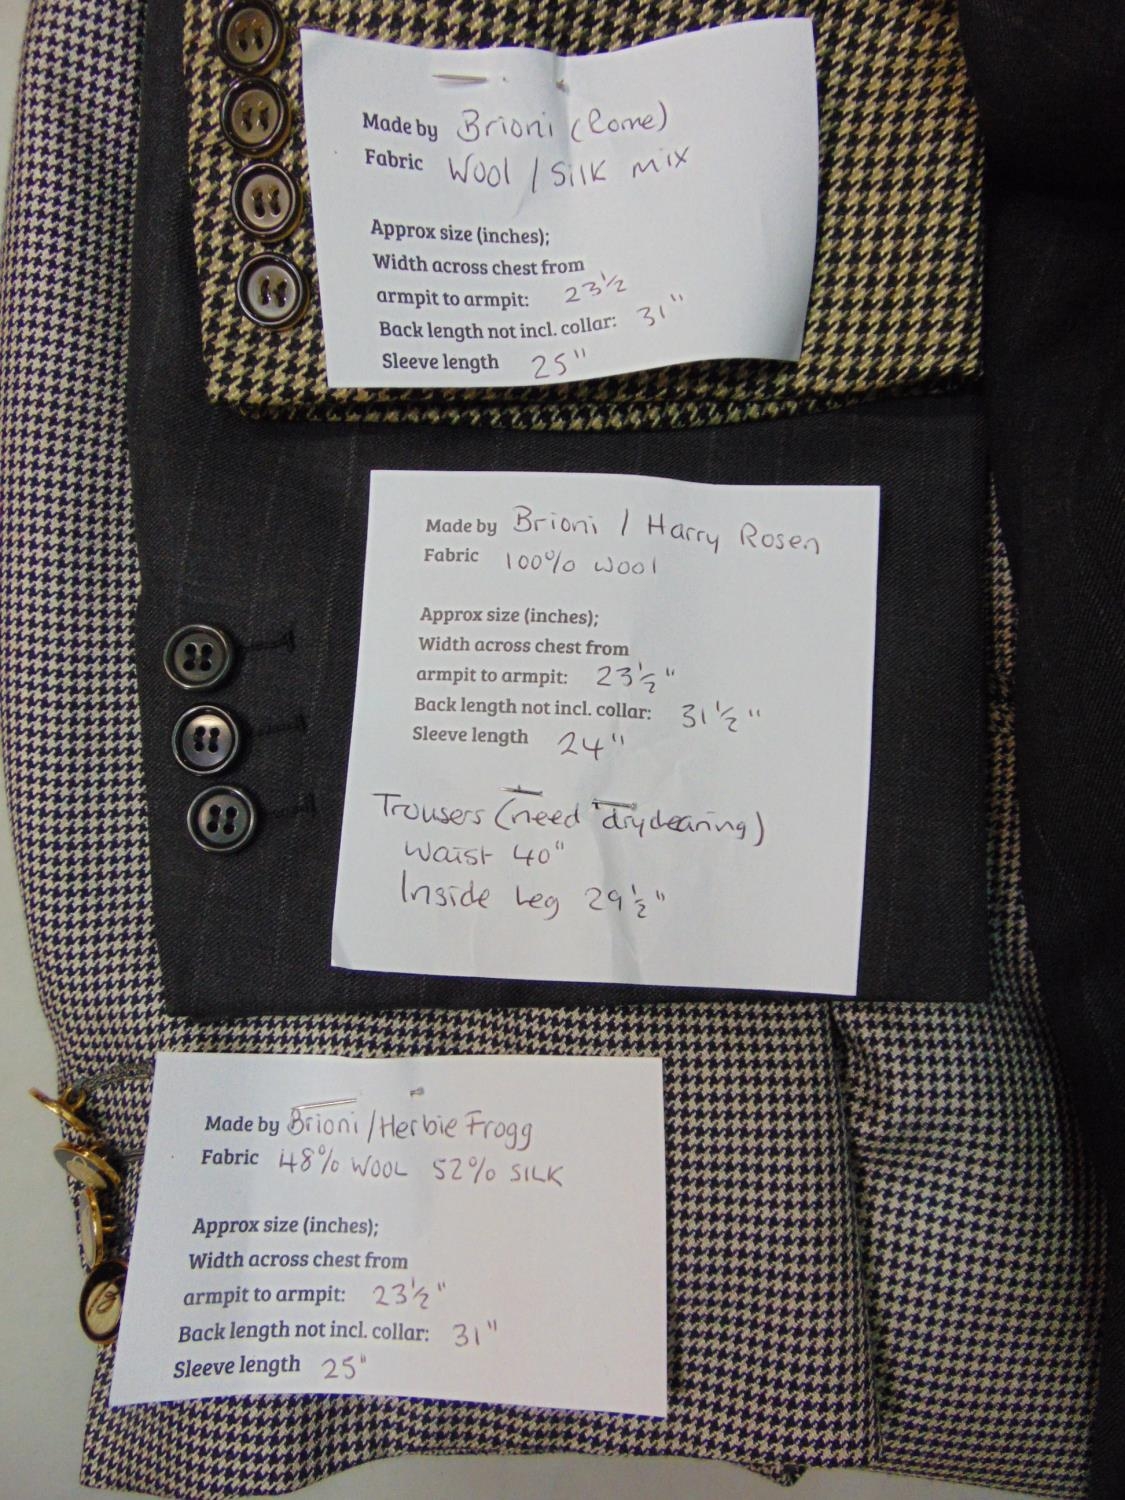 Made by Brioni (Rome)
Fabric Wool / Silk mix
Approx size (inches);
Width across chest from
armpit to armpit: 23½
Back length not incl. collar: 31"
Sleeve length 25"
Made by Brioni / Harry Rosen
Fabric 100% wool
Approx size (inches);
Width across chest from
armpit to armpit: 23½"
Back length not incl. collar: 31½"
Sleeve length 24"
Trousers (need drycleaning)
Waist 40"
Inside Leg 29½"
Made by Brioni / Herbie Frogg
Fabric 48% WOOL 52% SILK
Approx size (inches);
Width across chest from
armpit to armpit: 23½"
Back length not incl. collar: 31"
Sleeve length 25"